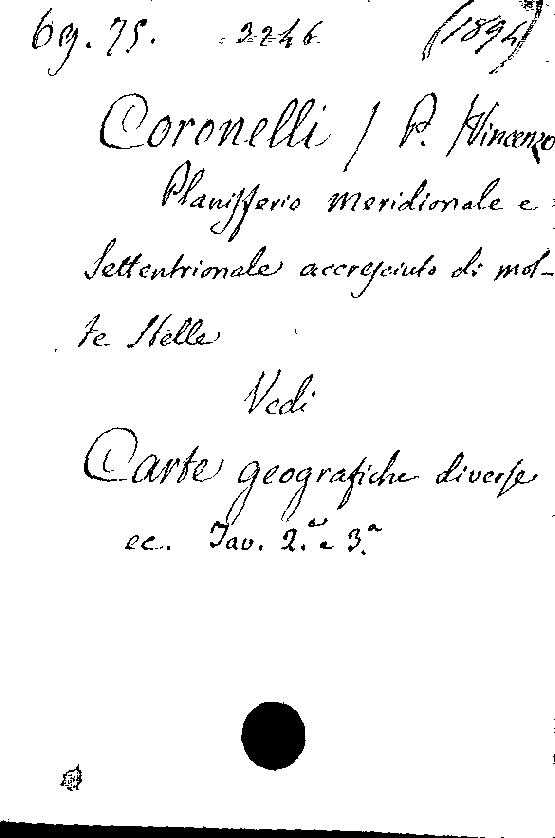 69.75. 3246 (1894)
Coronelli / P. /Vincenzo
Planisferio meridionale e
Settentrionale accresciuto di mol-
te Stelle
Vedi
Carte geografiche diverse
ec. Tav. 2.ª e 3.ª